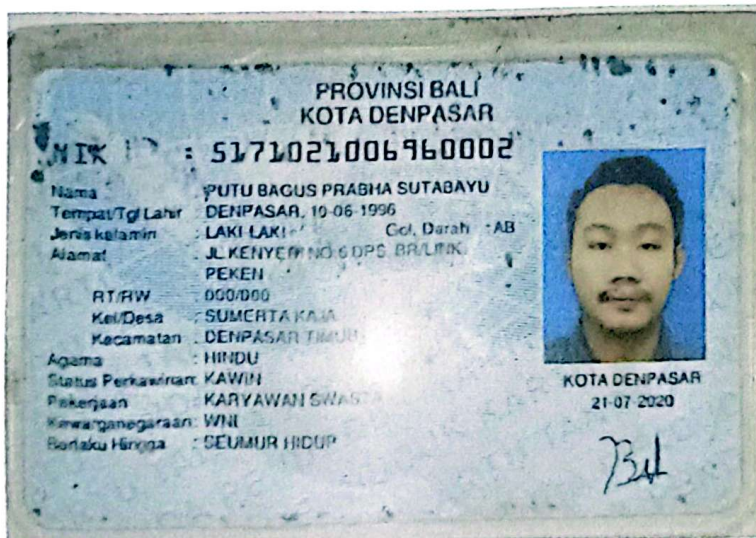 PROVINSI BALI
KOTA DENPASAR
NIK : 5171021006960002
Nama : PUTU BAGUS PRABHA SUTABAYU
Tempat/Tgl Lahir : DENPASAR, 10-06-1996
Jenis kelamin : LAKI-LAKI Gol. Darah : AB
Alamat : JL KENYERI NO 6 DPS BR/LINK
PEKEN
RT/RW : 000/000
Kel/Desa : SUMERTA KAJA
Kecamatan : DENPASAR TIMUR
Agama : HINDU
Status Perkawinan: KAWIN
Pekerjaan : KARYAWAN SWASTA
Kewarganegaraan: WNI
Berlaku Hingga : SEUMUR HIDUP
KOTA DENPASAR
21-07-2020